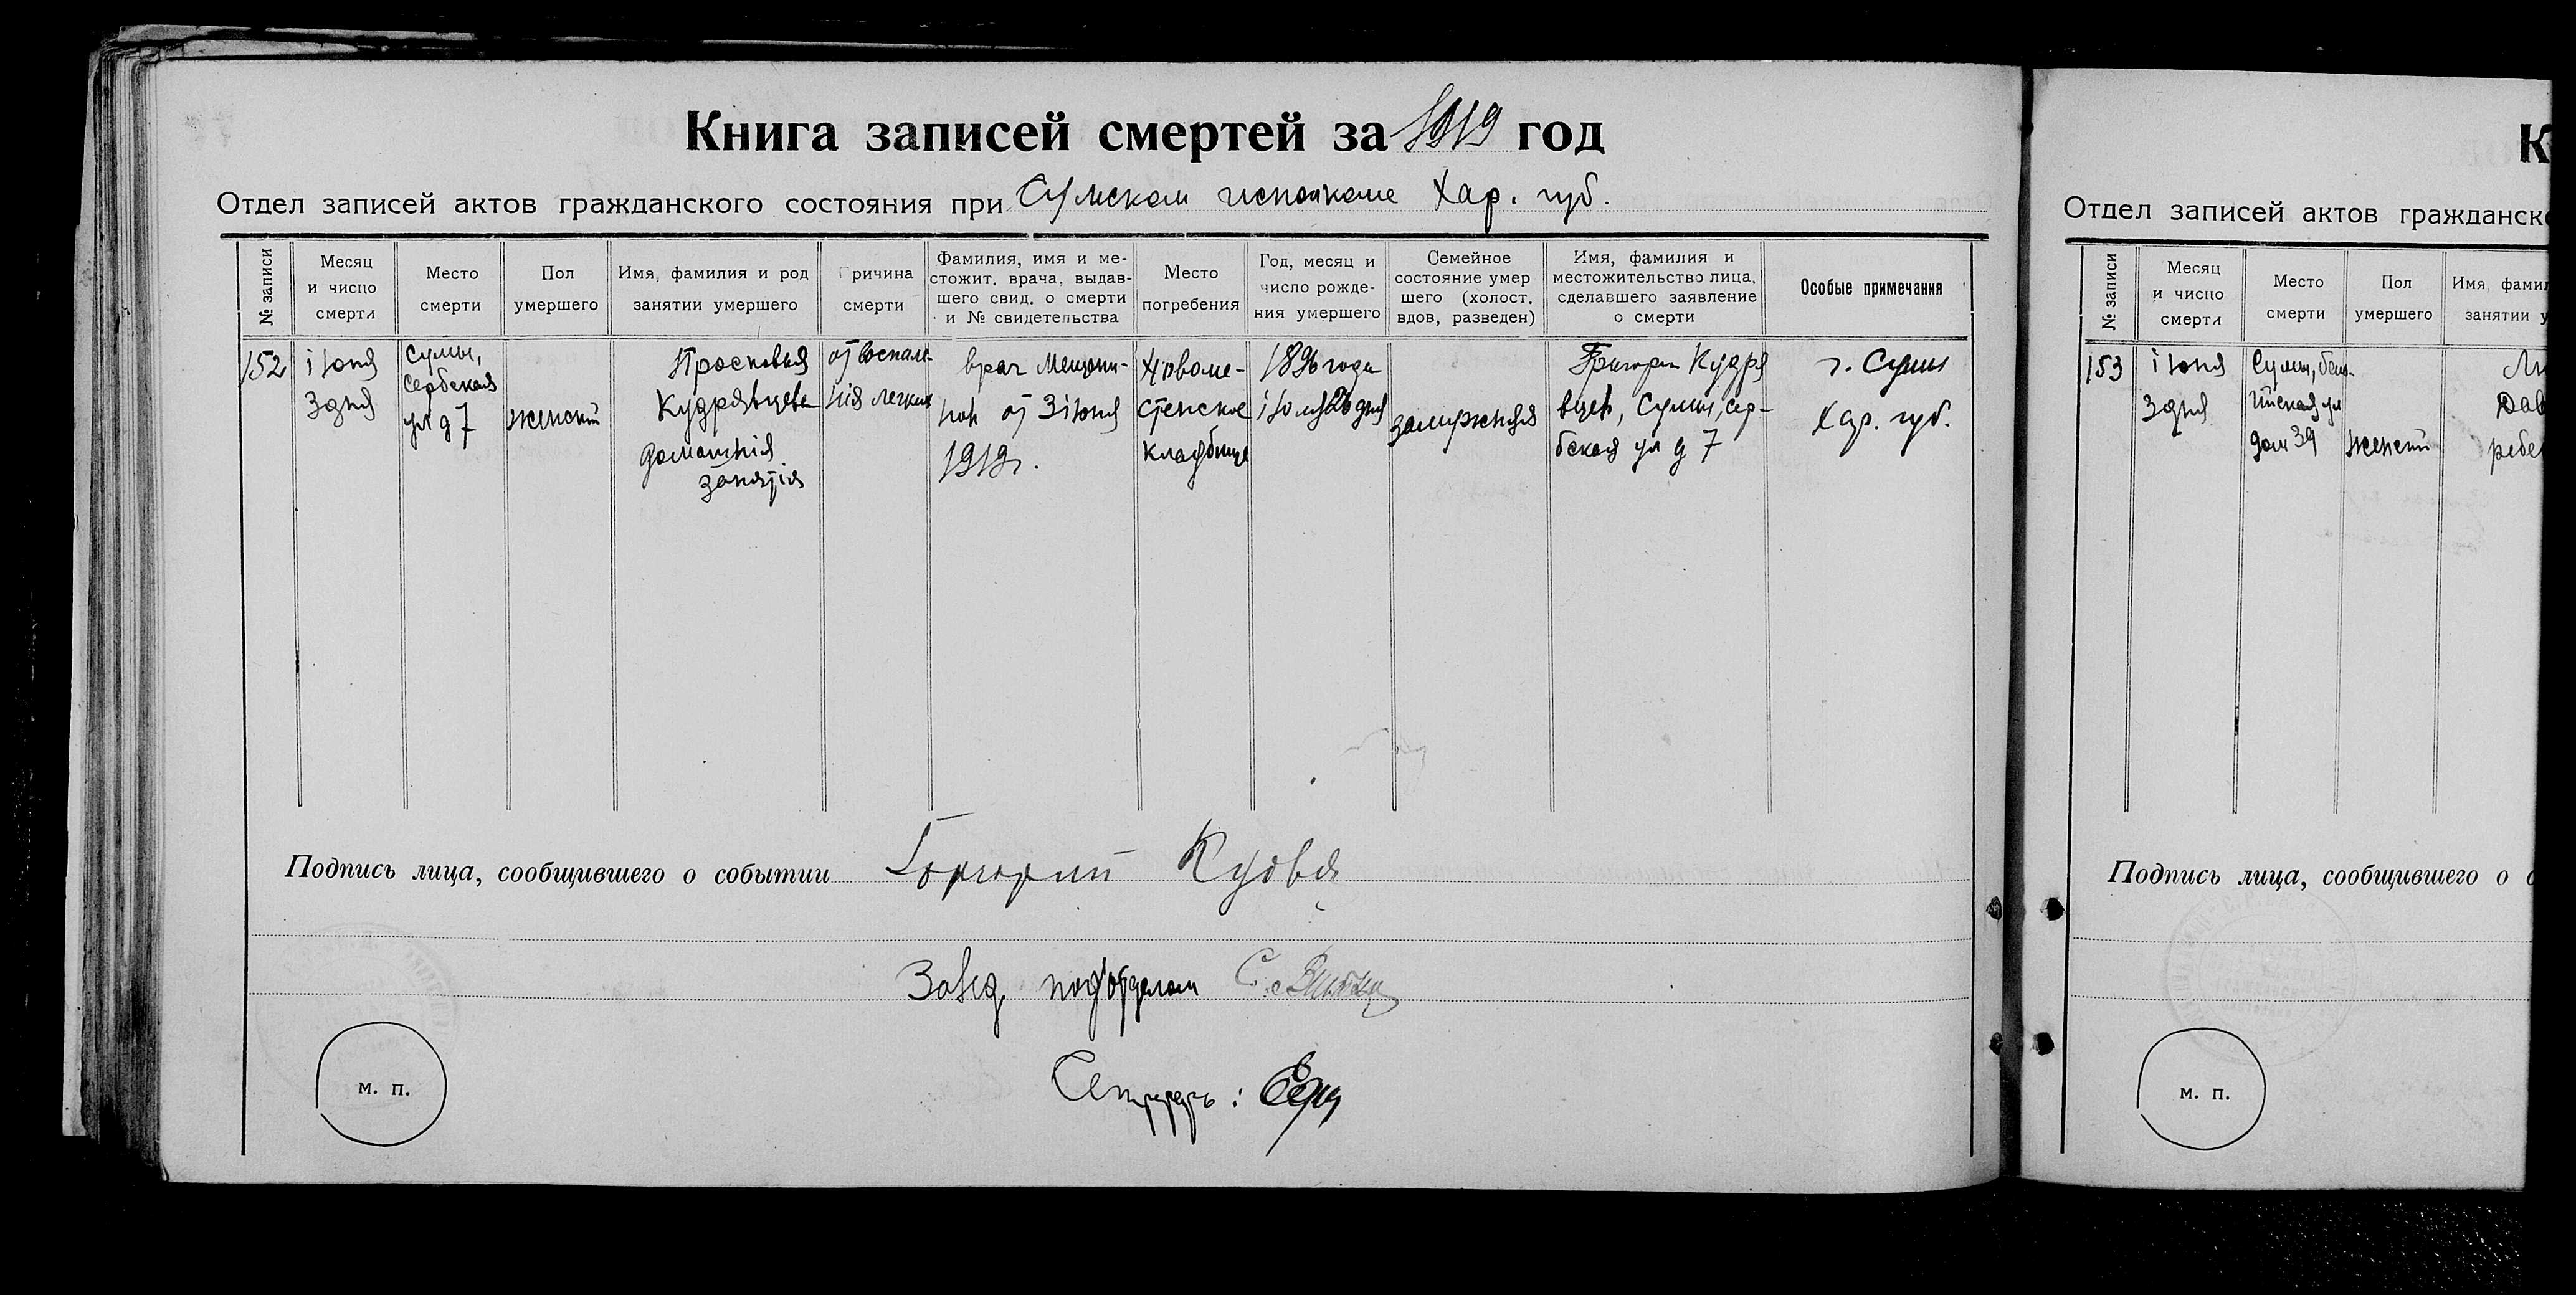 Книга записей смертей за 1919 год
Отдел записей актов гражданского состояния при Сумском исполкоме Хар. губ.
№ записи
Месяц
и число
смерти
Место
смерти
Пол
умершего
Имя, фамилия и род
занятии умершего
Причина
смерти
Фамилия, имя и ме-
стожит. врача, выдав-
шего свид. о смерти
и № свидетельства
Место
погребения
Год, месяц и
число рожде-
ния умершего
Семейное
состояние умер
шего (холост.
вдов, разведен)
Имя, фамилия и
местожительство лица,
сделавшего заявление
о смерти
Особые примечания
152
іюня
3 дня
Сумы,
Сербская
ул д 7
женский
Прасковья
Кудрявцева
домашнія
занятія
от воспале-
нія легких
врач Мещани-
нов от 3 іюня
1919 г.
Новоме-
стенское
кладбище
1896 года
замужняя
Григорий Кудря
вцев, Сумы, Сер-
бская ул д 7
г. Сумы
Хар. губ.
Подпись лица, сообщившего о событии Григорий
Завед подотделом
Секретарь:
м. п.
К
Отдел записей актов гражданско
№ записи
Месяц
и число
смерти
Место
смерти
Пол
умершего
Имя, фамил
занятии у
153
іюня
3 дня
Сумы, бель-
гийская ул
дом 39
женский
Подпись лица, сообщившего о с
м. п.